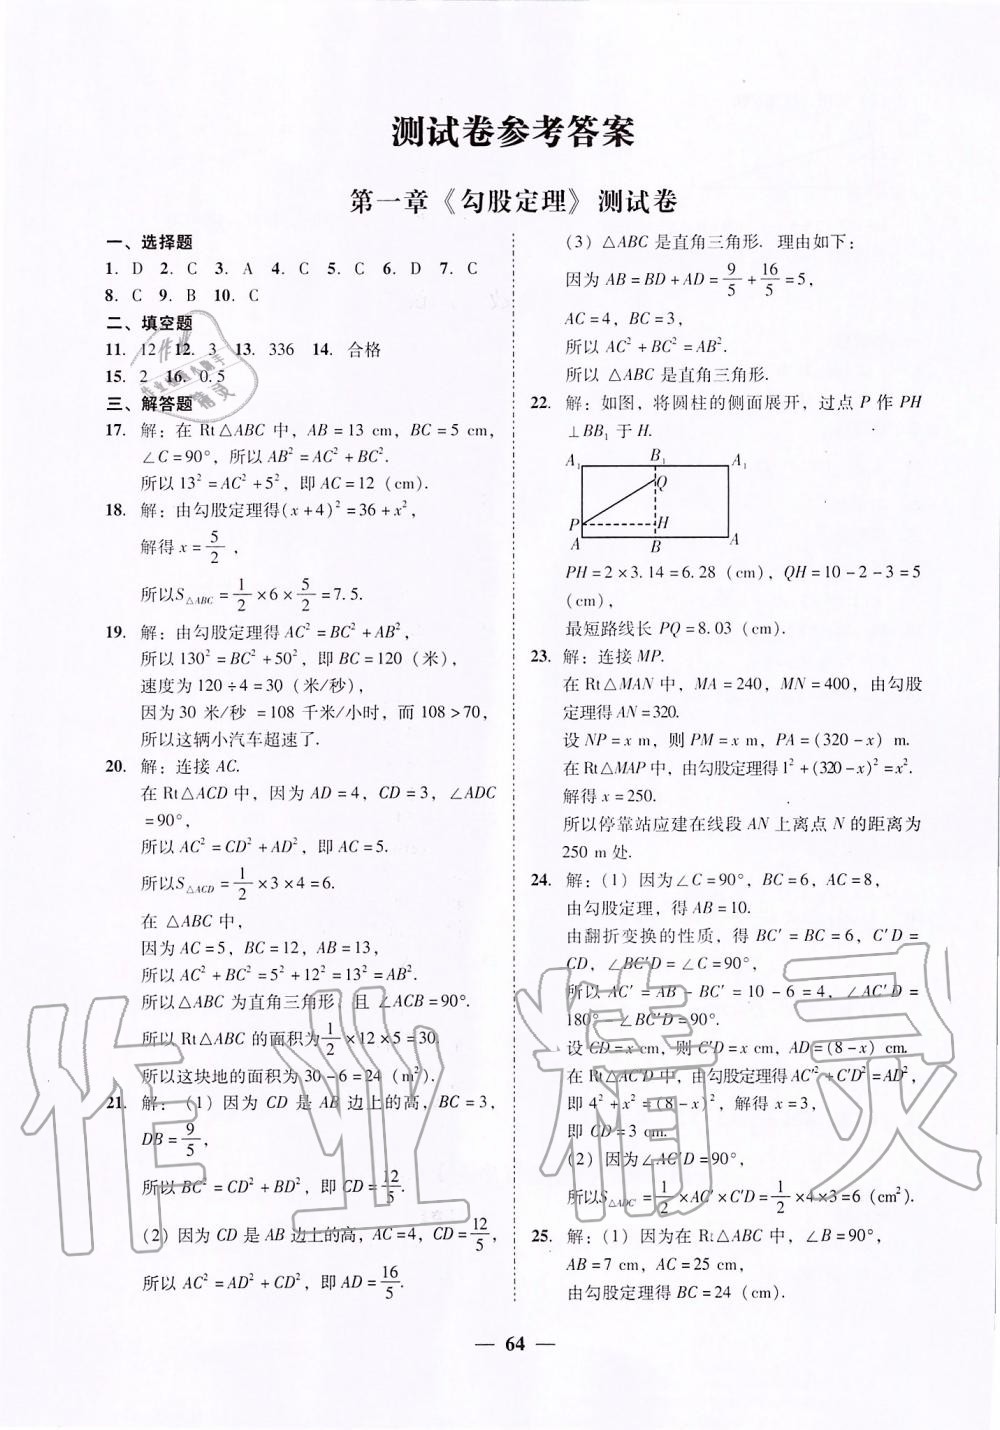 测试卷参考答案
第一章《勾股定理》测试卷
一、选择题
1. D 2. C 3. A 4. C 5. C 6. D 7. C
8. C 9. B 10. C
二、填空题
11. 12 12. 3 13. 336 14. 合格
15. 2 16. 0.5
三、解答题
17. 解：在 Rt△ABC 中，AB=13 cm，BC=5 cm，
∠C=90°，所以 AB²=AC²+BC².
所以 13²=AC²+5²，即 AC=12（cm）.
18. 解：由勾股定理得(x+4)²=36+x²，
解得 x=5/2，
所以S△ABC=1/2×6×5/2=7.5.
19. 解：由勾股定理得 AC²=BC²+AB²，
所以 130²=BC²+50²，即 BC=120（米），
速度为 120÷4=30（米/秒），
因为 30 米/秒 =108 千米/小时，而 108>70，
所以这辆小汽车超速了.
20. 解：连接 AC.
在 Rt△ACD 中，因为 AD=4，CD=3，∠ADC
=90°，
所以 AC²=CD²+AD²，即 AC=5.
所以S△ACD=1/2×3×4=6.
在 △ABC 中，
因为 AC=5，BC=12，AB=13，
所以 AC²+BC²=5²+12²=13²=AB².
所以△ABC 为直角三角形，且 ∠ACB=90°.
所以 Rt△ABC 的面积为1/2×12×5=30.
所以这块地的面积为 30-6=24（m²）.
21. 解：（1）因为 CD 是 AB 边上的高，BC=3，
DB=9/5，
所以 BC²=CD²+BD²，即 CD=12/5.
（2）因为 CD 是 AB 边上的高，AC=4，CD=12/5，
所以 AC²=AD²+CD²，即 AD=16/5.
（3）△ABC 是直角三角形. 理由如下：
因为 AB=BD+AD=9/5+16/5=5，
AC=4，BC=3，
所以 AC²+BC²=AB².
所以 △ABC 是直角三角形.
22. 解：如图，将圆柱的侧面展开，过点 P 作 PH
⊥BB₁ 于 H.
A₁ B₁ A₁
Q
P H
A B A
PH=2×3.14=6.28（cm），QH=10-2-3=5
（cm），
最短路线长 PQ=8.03（cm）.
23. 解：连接 MP.
在 Rt△MAN 中，MA=240，MN=400，由勾股
定理得 AN=320.
设 NP=x m，则 PM=x m，PA=(320-x) m.
在 Rt△MAP 中，由勾股定理得 1²+(320-x)²=x².
解得 x=250.
所以停靠站应建在线段 AN 上离点 N 的距离为
250 m 处.
24. 解：（1）因为∠C=90°，BC=6，AC=8，
由勾股定理，得 AB=10.
由翻折变换的性质，得 BC′=BC=6，C′D=
CD，∠BC′D=∠C=90°，
所以 AC′=AB-BC′=10-6=4，∠AC′D=
180°-∠BC′D=90°.
设 CD=x cm，则 C′D=x cm，AD=(8-x) cm.
在 Rt△AC′D 中，由勾股定理得 AC′²+C′D²=AD²，
即 4²+x²=(8-x)²，解得 x=3，
即 CD=3 cm.
（2）因为∠AC′D=90°，
所以S△ADC′=1/2×AC′×C′D=1/2×4×3=6（cm²）.
25. 解：（1）因为在 Rt△ABC 中，∠B=90°，
AB=7 cm，AC=25 cm，
由勾股定理得 BC=24（cm）.
— 64 —
作业精灵